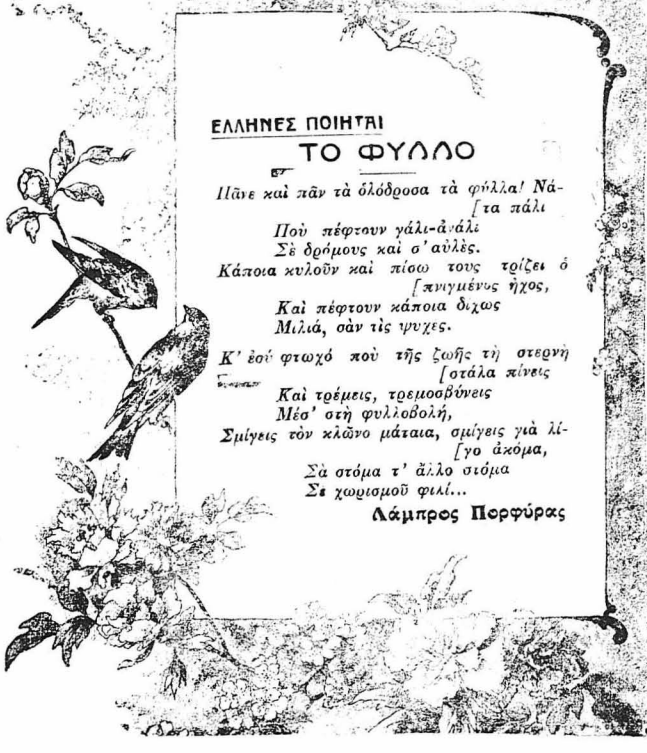 ΕΛΛΗΝΕΣ ΠΟΙΗΤΑΙ
ΤΟ ΦΥΛΛΟ
Πᾶνε καὶ πᾶν τὰ ὁλόδροσα τὰ φύλλα! Νά-
[τα πάλι
Ποὺ πέφτουν γάλι-ἀγάλι
Σὲ δρόμους καὶ σ' αὐλὲς.
Κάποια κυλοῦν καὶ πίσω τους τρίζει ὁ
[πνιγμένος ἦχος,
Καὶ πέφτουν κάποια δίχως
Μιλιά, σὰν τὶς ψυχες.
Κ' ἐσύ φτωχό ποὺ τῆς ζωῆς τὴ στερνὴ
[στάλα πίνεις
Καὶ τρέμεις, τρεμοσβύνεις
Μέσ' στὴ φυλλοβολή,
Σμίγεις τὸν κλῶνο μάταια, σμίγεις γιὰ λί-
[γο ἀκόμα,
Σὰ στόμα τ' ἄλλο στόμα
Σὲ χωρισμοῦ φιλί...
Λάμπρος Πορφύρας